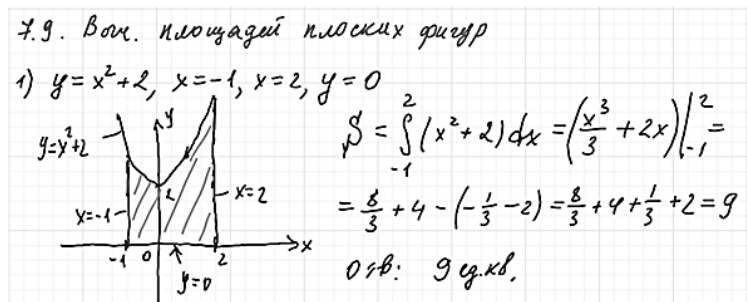 7.9. Выч. площадей плоских фигур
1) y = x² + 2, x = -1, x = 2, y = 0
y = x² + 2
y
2
x = -1
x = 2
-1
0
2
x
y = 0
S = ∫₋₁² (x² + 2) dx = (x³/3 + 2x) |₋₁² =
= 8/3 + 4 - (-1/3 - 2) = 8/3 + 4 + 1/3 + 2 = 9
Отв: 9 ед.кв.